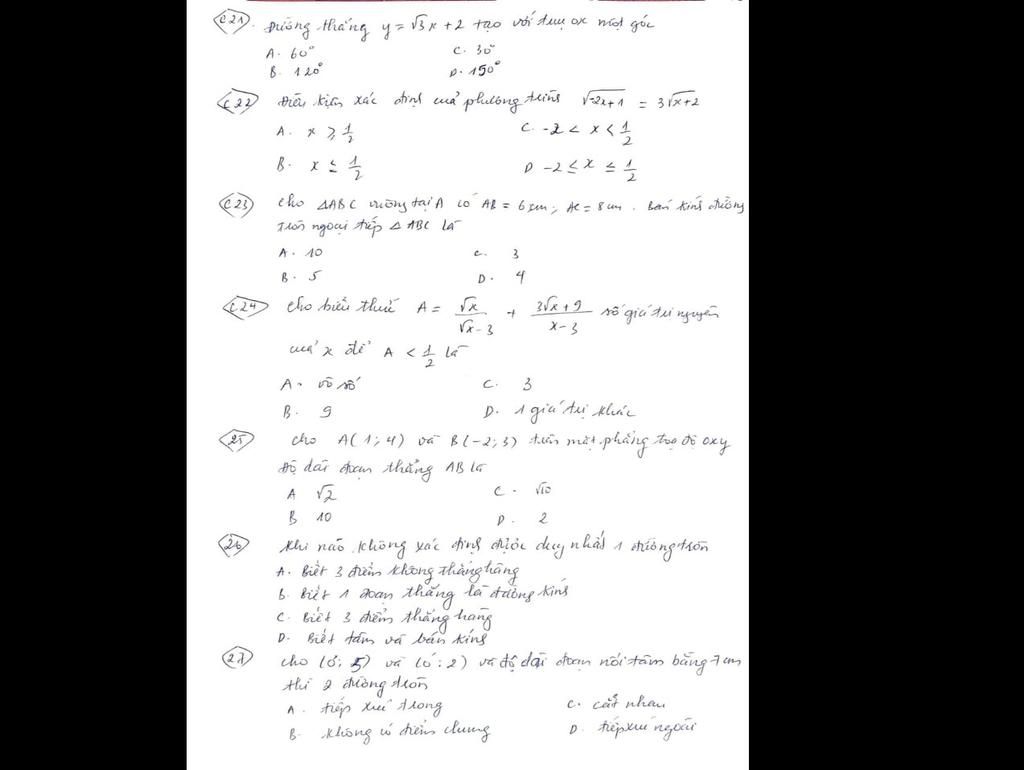 C21. Đường thẳng y = √3x + 2 tạo với trục ox một góc
A. 60° C. 30°
B. 120° D. 150°
C22 Điều kiện xác định của phương trình √-2x+1 = 3√x+2
A. x ≥ 1/2 C. -2 < x < 1/2
B. x ≤ 1/2 D -2 ≤ x ≤ 1/2
C23 Cho ΔABC vuông tại A có AB = 6cm; AC = 8cm. Bán kính đường
tròn ngoại tiếp Δ ABC là
A. 10 C. 3
B. 5 D. 4
C24 Cho biểu thức A = √x/(√x-3) + (3√x+9)/(x-3) số giá trị nguyên
của x để A < 1/2 là
A. vô số C. 3
B. 9 D. 1 giá trị khác
25 Cho A(1;4) và B(-2;3) trên mặt phẳng toạ độ oxy
Độ dài đoạn thẳng AB là
A √2 C. √10
B 10 D. 2
26 Khi nào không xác định được duy nhất 1 đường tròn
A. Biết 3 điểm không thẳng hàng
B. Biết 1 đoạn thẳng là đường kính
C. Biết 3 điểm thẳng hàng
D. Biết tâm và bán kính
27 Cho (O; 5) và (O': 2) và độ dài đoạn nối tâm bằng 7cm
thì 2 đường tròn
A. tiếp xúc trong C. cắt nhau
B. không có điểm chung D. tiếp xúc ngoài